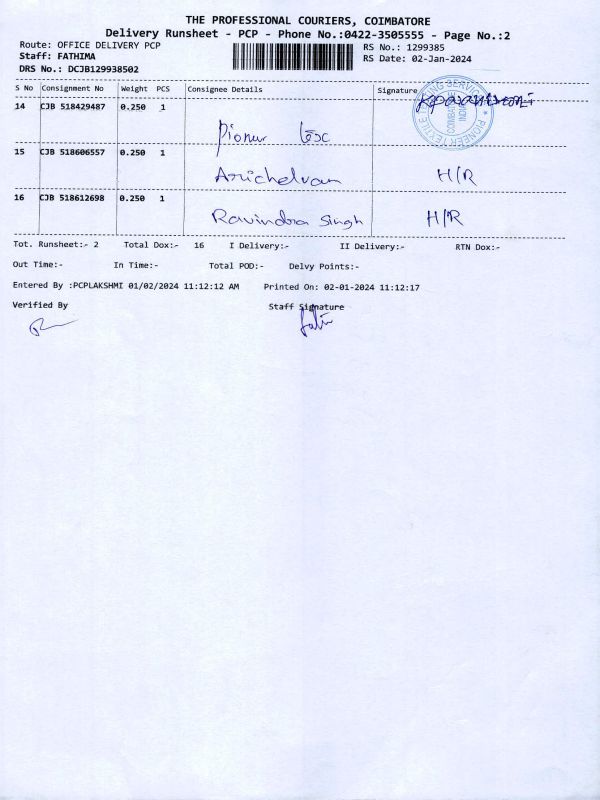 THE PROFESSIONAL COURIERS, COIMBATORE
Delivery Runsheet - PCP - Phone No.:0422-3505555 - Page No.:2
Route: OFFICE DELIVERY PCP RS No.: 1299385
Staff: FATHIMA RS Date: 02-Jan-2024
DRS No.: DCJB129938502
S No Consignment No Weight PCS Consignee Details Signature
14 CJB 518429487 0.250 1
PIONEER TEXTILE TESTING SERVICE
COIMBATORE
INDIA
15 CJB 518606557 0.250 1
Arichelvan H/R
16 CJB 518612698 0.250 1
Ravindra Singh H/R
Tot. Runsheet:- 2 Total Dox:- 16 I Delivery:- II Delivery:- RTN Dox:-
Out Time:- In Time:- Total POD:- Delvy Points:-
Entered By :PCPLAKSHMI 01/02/2024 11:12:12 AM Printed On: 02-01-2024 11:12:17
Verified By Staff Signature